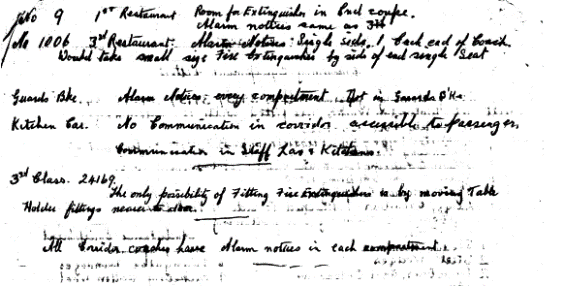 No 9 1st Restaurant Room for Extinguisher in End coupe.
Alarm notices same as 3rd
No 1006 3rd Restaurant Alarm Notices: Single side, 1 Each end of Coach.
Would take small size Fire Extinguisher by side of end single Seat
Guards Bke. Alarm Notices every compartment Not in Guards B'ke
Kitchen Car. No Communication in corridor accessible to passengers,
Communication in Staff Lav & Kitchens.
3rd Class. 24169.
The only possibility of Fitting Fire Extinguishers is by moving Table
Holder fittings nearer to door.
All Corridor coaches have Alarm notices in each compartment.